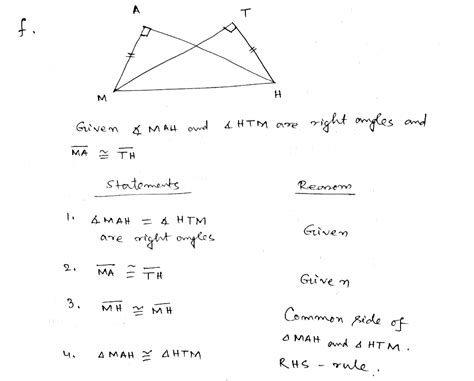 f.
A T
M H
Given ∡ MAH and ∡ HTM are right angles and
MA ≅ TH
Statements Reason
1. ∡ MAH = ∡ HTM
are right angles Given
2. MA ≅ TH Given
3. MH ≅ MH Common side of
△ MAH and △ HTM.
4. △ MAH ≅ △ HTM RHS - rule.